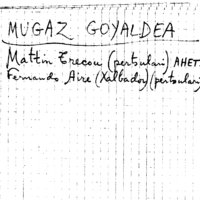 MUGAZ GOYALDEA
Mattin Trecou (pertsulari) AHET
Fernando Aire (Xalbador) (pertsulari)